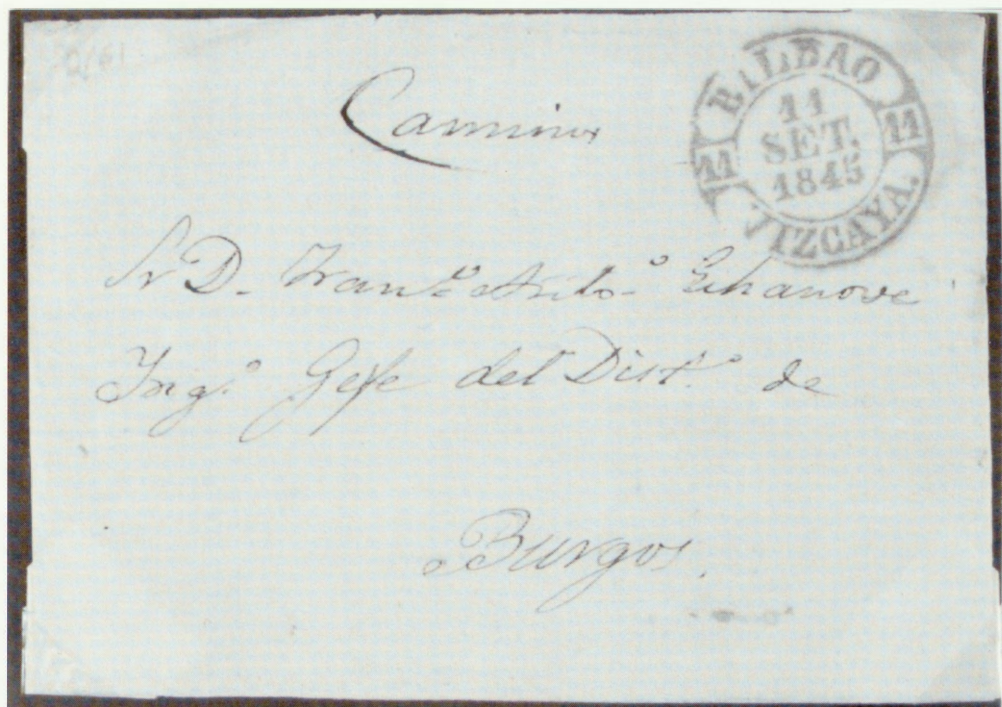 Caminos
BILBAO
11
SET.
1845
11
11
VIZCAYA.
Sr D. Franco. Anto. Echanove
Ingo. Gefe del Disto. de
Burgos.